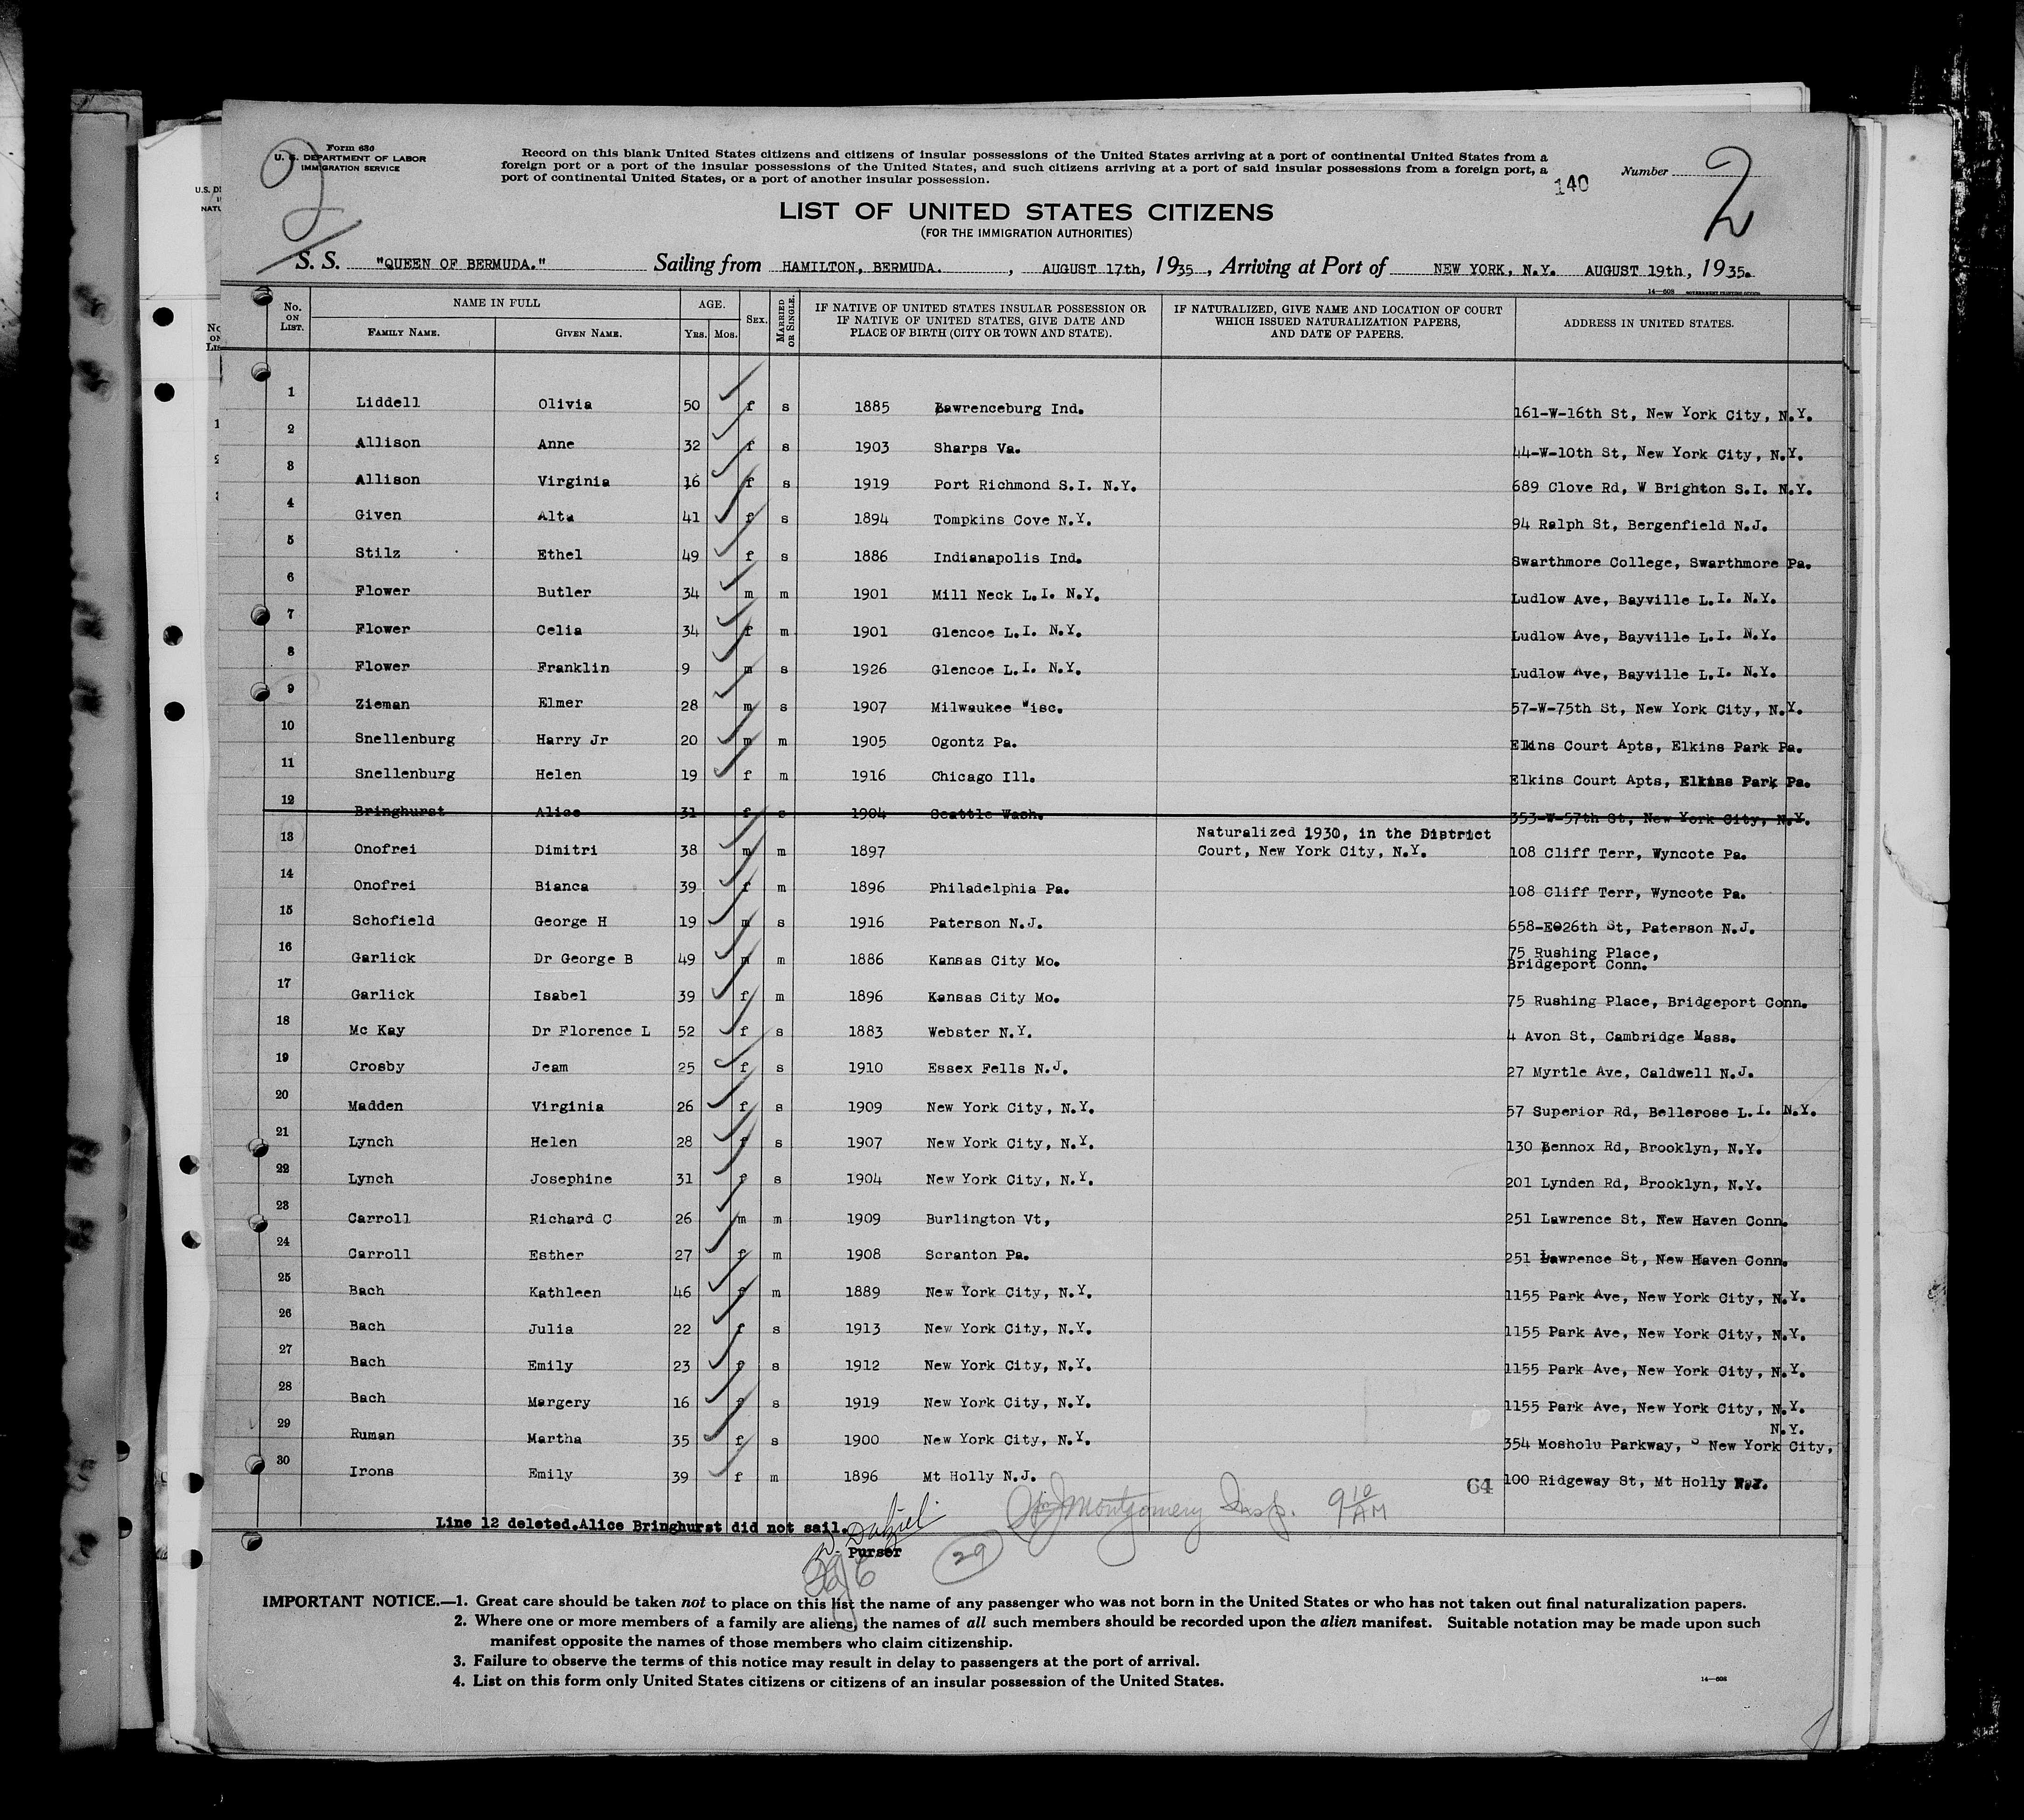 Form 630
U. S. DEPARTMENT OF LABOR
IMMIGRATION SERVICE
Record on this blank United States citizens and citizens of insular possessions of the United States arriving at a port of continental United States from a
foreign port or a port of the insular possessions of the United States, and such citizens arriving at a port of said insular possessions from a foreign port, a
port of continental United States, or a port of another insular possession.
140
Number 2
LIST OF UNITED STATES CITIZENS
(FOR THE IMMIGRATION AUTHORITIES)
S. S. "QUEEN OF BERMUDA." Sailing from HAMILTON, BERMUDA. , AUGUST 17th, 1935, Arriving at Port of NEW YORK, N.Y. AUGUST 19th, 1935.
14—608
No. ON LIST. NAME IN FULL FAMILY NAME. GIVEN NAME. AGE. YRS. MOS. SEX. MARRIED OR SINGLE. IF NATIVE OF UNITED STATES INSULAR POSSESSION OR IF NATIVE OF UNITED STATES, GIVE DATE AND PLACE OF BIRTH (CITY OR TOWN AND STATE). IF NATURALIZED, GIVE NAME AND LOCATION OF COURT WHICH ISSUED NATURALIZATION PAPERS, AND DATE OF PAPERS. ADDRESS IN UNITED STATES.
1 Liddell Olivia 50 f s 1885 Lawrenceburg Ind. 161-W-16th St, New York City, N.Y.
2 Allison Anne 32 f s 1903 Sharps Va. 44-W-10th St, New York City, N.Y.
3 Allison Virginia 16 f s 1919 Port Richmond S.I. N.Y. 689 Clove Rd, W Brighton S.I. N.Y.
4 Given Alta 41 f s 1894 Tompkins Cove N.Y. 94 Ralph St, Bergenfield N.J.
5 Stilz Ethel 49 f s 1886 Indianapolis Ind. Swarthmore College, Swarthmore Pa.
6 Flower Butler 34 m m 1901 Mill Neck L.I. N.Y. Ludlow Ave, Bayville L.I. N.Y.
7 Flower Celia 34 f m 1901 Glencoe L.I. N.Y. Ludlow Ave, Bayville L.I. N.Y.
8 Flower Franklin 9 m s 1926 Glencoe L.I. N.Y. Ludlow Ave, Bayville L.I. N.Y.
9 Zieman Elmer 28 m s 1907 Milwaukee Wisc. 57-W-75th St, New York City, N.Y.
10 Snellenburg Harry Jr 20 m m 1905 Ogontz Pa. Elkins Court Apts, Elkins Park Pa.
11 Snellenburg Helen 19 f m 1916 Chicago Ill. Elkins Court Apts, Elkins Park Pa.
12 Bringhurst Alice 31 f s 1904 Seattle Wash. 353-W-57th St, New York City, N.Y.
13 Onofrei Dimitri 38 m m 1897 Naturalized 1930, in the District Court, New York City, N.Y. 108 Cliff Terr, Wyncote Pa.
14 Onofrei Bianca 39 f m 1896 Philadelphia Pa. 108 Cliff Terr, Wyncote Pa.
15 Schofield George H 19 m s 1916 Paterson N.J. 658-E026th St, Paterson N.J.
16 Garlick Dr George B 49 m m 1886 Kansas City Mo. 75 Rushing Place, Bridgeport Conn.
17 Garlick Isabel 39 f m 1896 Kansas City Mo. 75 Rushing Place, Bridgeport Conn.
18 Mc Kay Dr Florence L 52 f s 1883 Webster N.Y. 4 Avon St, Cambridge Mass.
19 Crosby Jeam 25 f s 1910 Essex Fells N.J. 27 Myrtle Ave, Caldwell N.J.
20 Madden Virginia 26 f s 1909 New York City, N.Y. 57 Superior Rd, Bellerose L.I. N.Y.
21 Lynch Helen 28 f s 1907 New York City, N.Y. 130 Lennox Rd, Brooklyn, N.Y.
22 Lynch Josephine 31 f s 1904 New York City, N.Y. 201 Lynden Rd, Brooklyn, N.Y.
23 Carroll Richard C 26 m m 1909 Burlington Vt, 251 Lawrence St, New Haven Conn.
24 Carroll Esther 27 f m 1908 Scranton Pa. 251 Lawrence St, New Haven Conn.
25 Bach Kathleen 46 f m 1889 New York City, N.Y. 1155 Park Ave, New York City, N.Y.
26 Bach Julia 22 f s 1913 New York City, N.Y. 1155 Park Ave, New York City, N.Y.
27 Bach Emily 23 f s 1912 New York City, N.Y. 1155 Park Ave, New York City, N.Y.
28 Bach Margery 16 f s 1919 New York City, N.Y. 1155 Park Ave, New York City, N.Y.
29 Ruman Martha 35 f s 1900 New York City, N.Y. 354 Mosholu Parkway, New York City, N.Y.
30 Irons Emily 39 f m 1896 Mt Holly N.J. 100 Ridgeway St, Mt Holly
64
Montgomery Insp. 9 10 AM
Line 12 deleted.Alice Bringhurst did not sail.
Purser
29
IMPORTANT NOTICE.—1. Great care should be taken not to place on this list the name of any passenger who was not born in the United States or who has not taken out final naturalization papers.
2. Where one or more members of a family are aliens, the names of all such members should be recorded upon the alien manifest. Suitable notation may be made upon such
manifest opposite the names of those members who claim citizenship.
3. Failure to observe the terms of this notice may result in delay to passengers at the port of arrival.
4. List on this form only United States citizens or citizens of an insular possession of the United States.
14—608